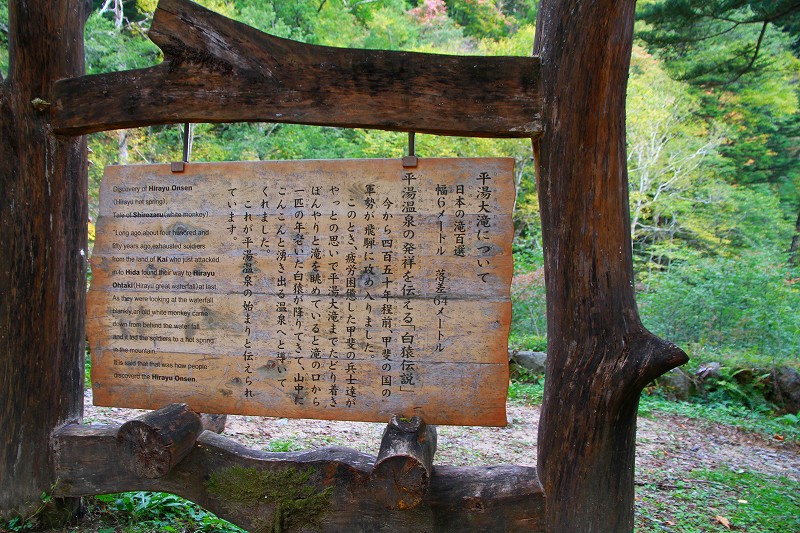 平湯大滝について
日本の滝百選
幅6メートル　落差64メートル
平湯温泉の発祥を伝える「白猿伝説」
今から四百五十年程前、甲斐の国の
軍勢が飛騨に攻め入りました。
このとき、疲労困憊した甲斐の兵士達が
やっとの思いで平湯大滝までたどり着き
ぼんやりと滝を眺めていると滝の口から
一匹の年老いた白猿が降りてきて、山中に
こんこんと湧き出る温泉へと導いて
くれました。
これが平湯温泉の始まりと伝えられ
ています。
Discovery of Hirayu Onsen
(Hirayu hot spring),
Tale of Shirozaru(white monkey)
"Long ago,about four hundred and
fifty years ago,exhausted soldiers
from the land of Kai who just attacked
in to Hida found their way to Hirayu
Ohtaki(Hirayu great waterfall)at last.
As they were looking at the waterfall
blankly,an old white monkey came
down from behind the water fall
and it led the soldiers to a hot spring
in the mountain.
It is said that that was how people
discoverd the Hirayu Onsen.